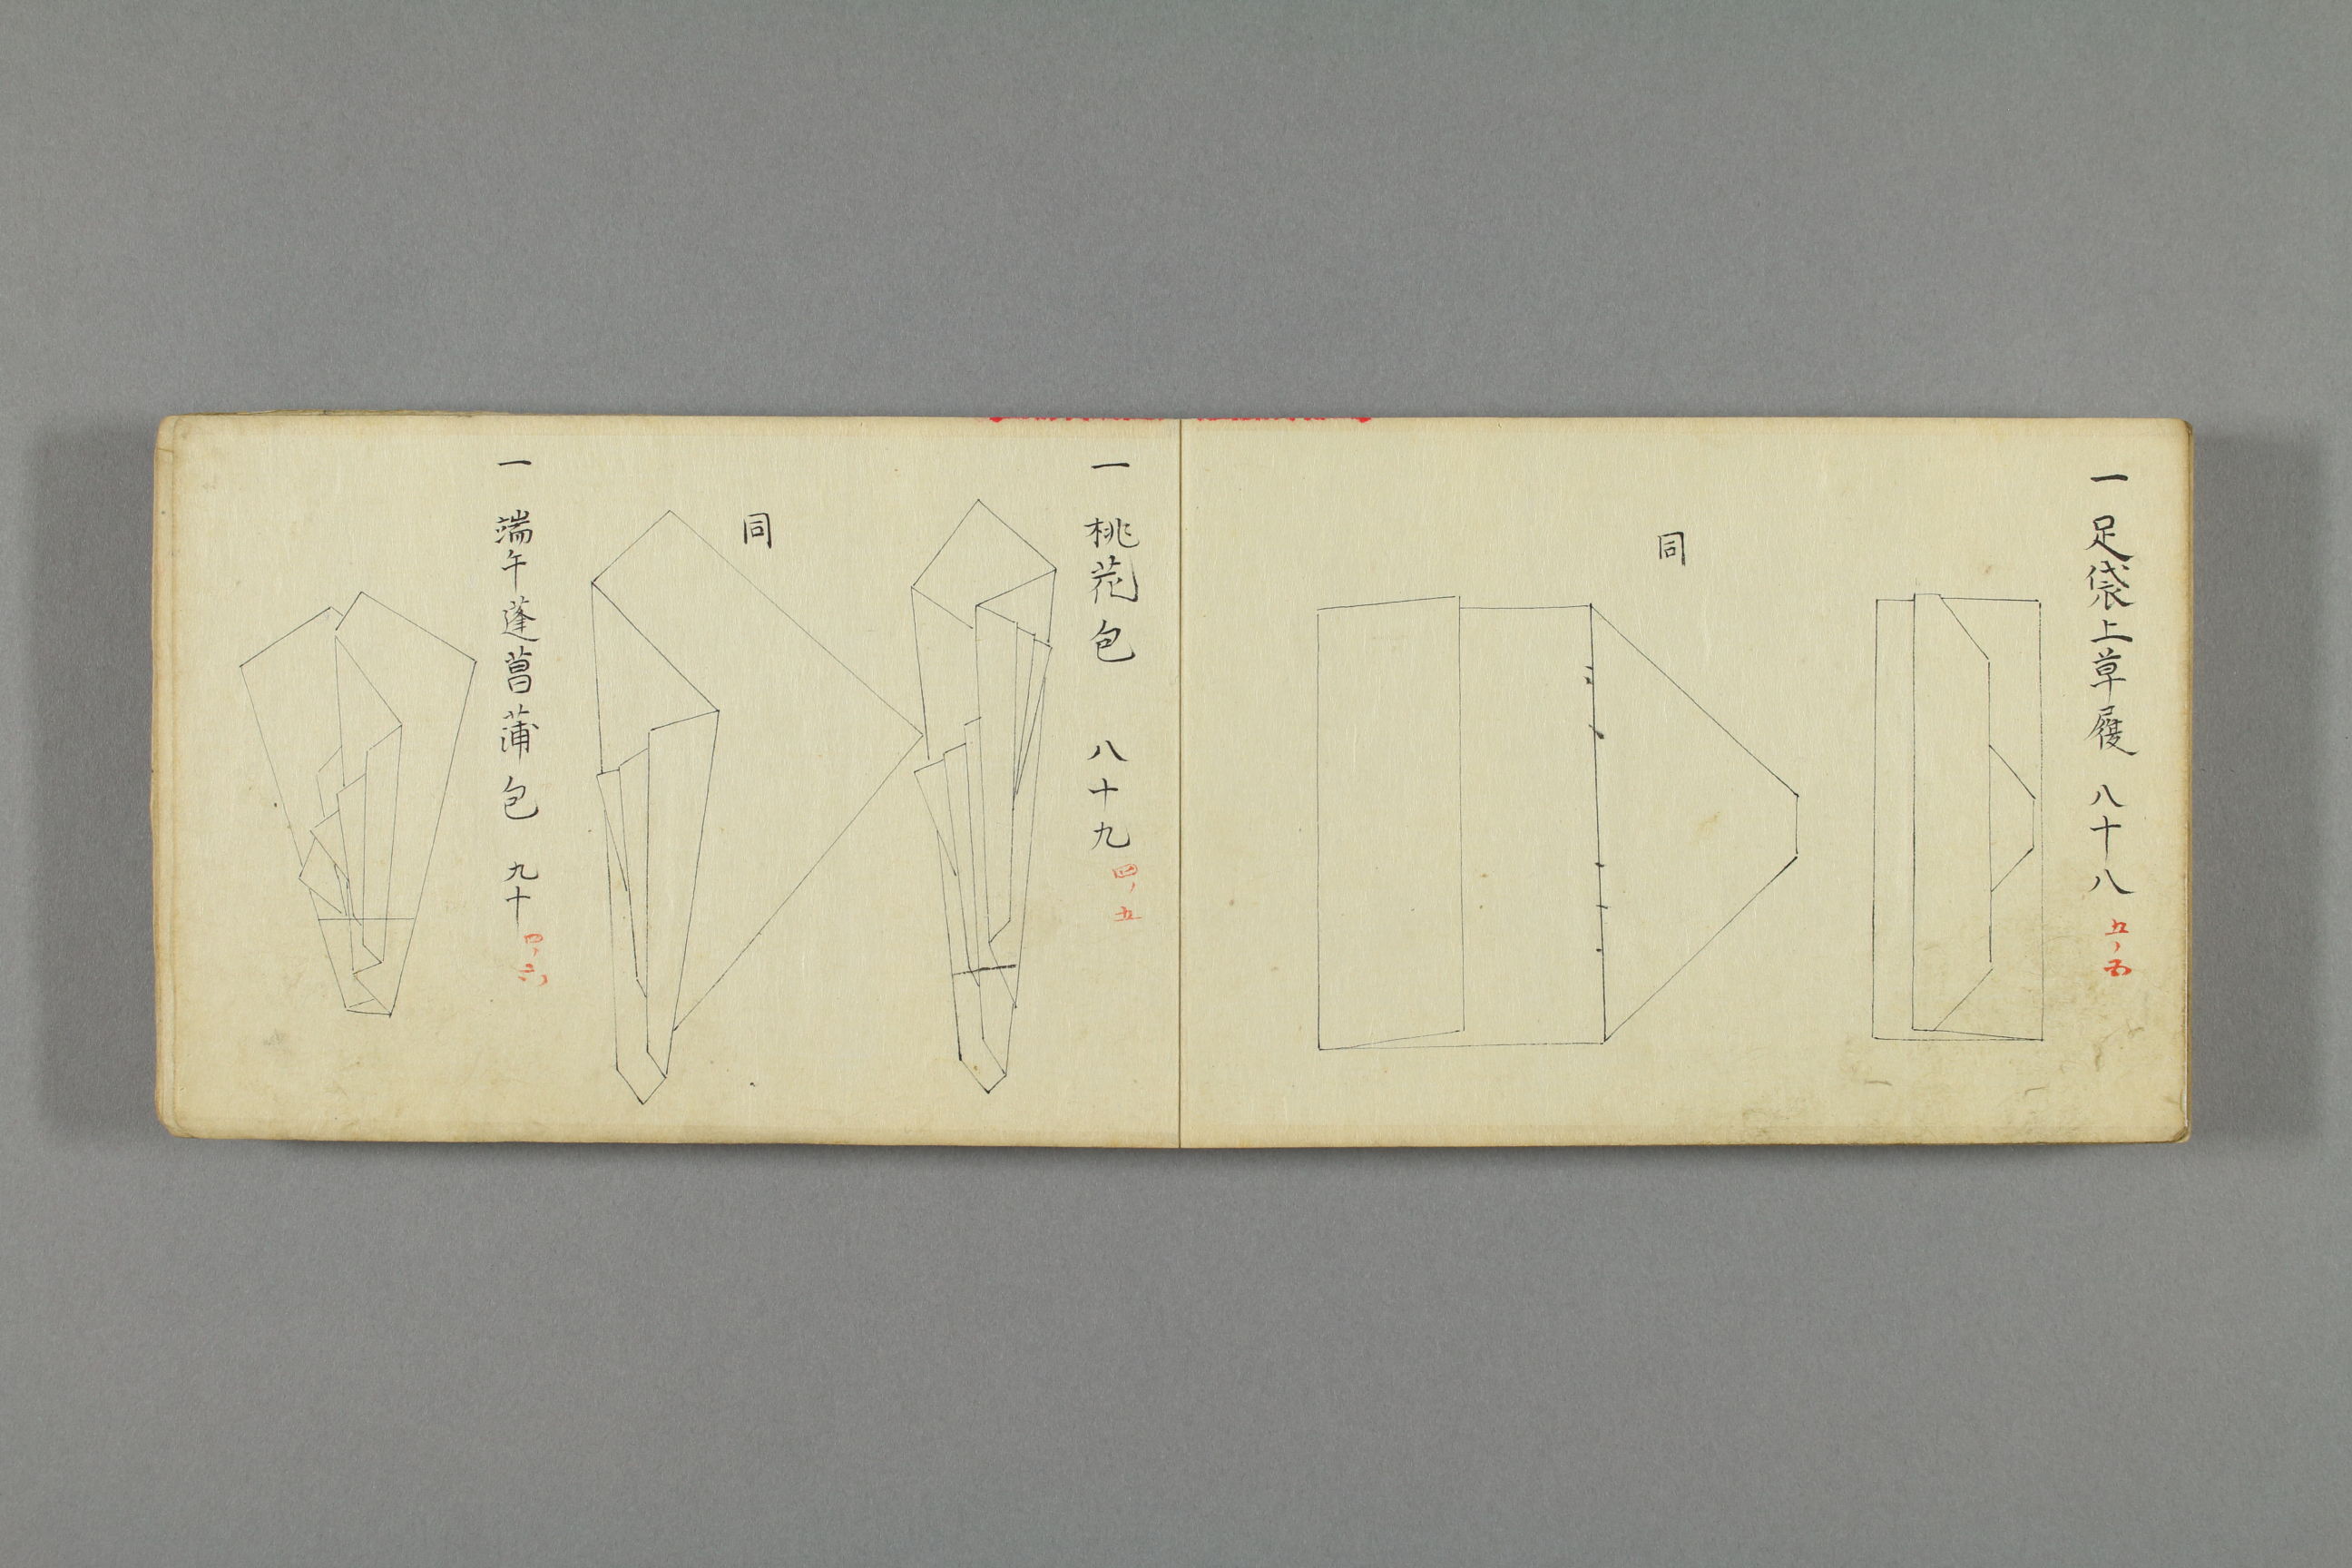 一 足袋上草履 八十八 五、五
同
一 桃花包 八十九 四、五
同
一 端午蓬菖蒲包 九十 四、六